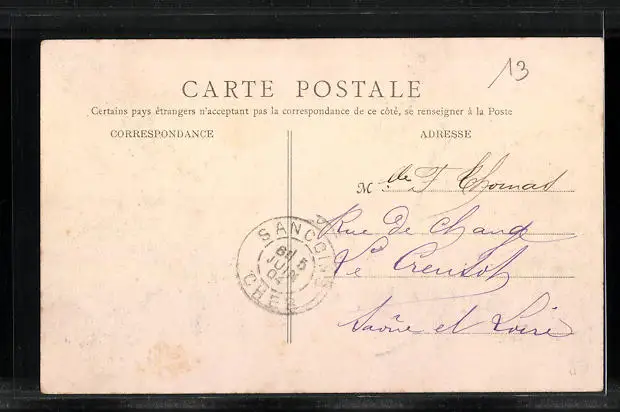 13
CARTE POSTALE
Certains pays étrangers n'acceptant pas la correspondance de ce côté, se renseigner à la Poste
CORRESPONDANCE
ADRESSE
M. de F Thomas
Rue de Change
Le Creusot
Saône et Loire
SANCOINS
5
JUIN
04
CHER